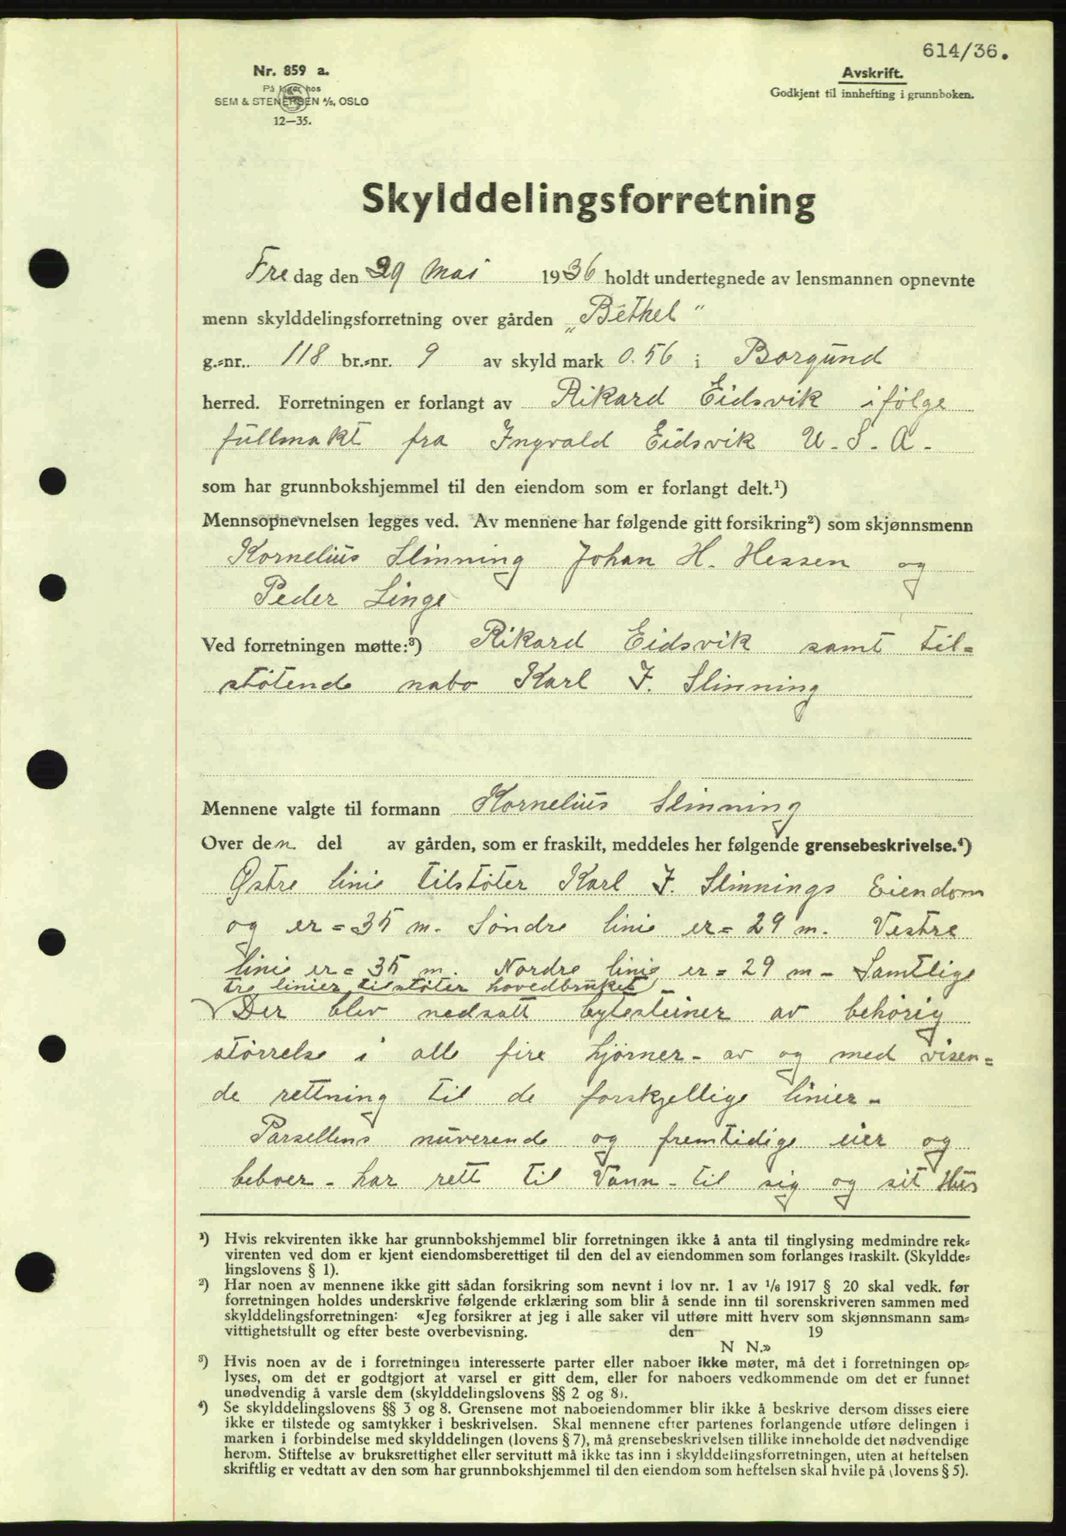 614/36.
Nr. 859 a.
På lager hos
SEM & STENERSEN A/S, OSLO
12—35.
Avskrift.
Godkjent til innhefting i grunnboken.
Skylddelingsforretning
Fredag den 29 Mai 1936 holdt undertegnede av lensmannen opnevnte
menn skylddelingsforretning over gården „Bethel"
g.-nr. 118 br.-nr. 9 av skyld mark 0.56 i Borgund
herred. Forretningen er forlangt av Rikard Eidsvik ifølge
fullmakt fra Ingvald Eidsvik U.S.A.
som har grunnbokshjemmel til den eiendom som er forlangt delt.¹)
Mennsopnevnelsen legges ved. Av mennene har følgende gitt forsikring²) som skjønnsmenn
Kornelius Slinning Johan H. Hessen og
Peder Linge
Ved forretningen møtte:³) Rikard Eidsvik samt til=
støtende nabo Karl J. Slinning
Mennene valgte til formann Kornelius Slinning
Over den del av gården, som er fraskilt, meddeles her følgende grensebeskrivelse.⁴)
Østre linie tilstøter Karl J. Slinnings Eiendom
og er = 35 m. Søndre linie er = 29 m. Vestre
linie er = 35 m. Nordre linie er = 29 m - Samtlige
tre linier tilstøter hovedbruket
√ Der blev nedsatt bytesteiner av behørig
størrelse i alle fire hjørner - av og med visen=
de rettning til de forskjellige linier -
Parsellens nuverende og fremtidige eier og
beboer - har rett til Vann - til sig og sit Hus
¹) Hvis rekvirenten ikke har grunnbokshjemmel blir forretningen ikke å anta til tinglysing medmindre rek-
virenten ved dom er kjent eiendomsberettiget til den del av eiendommen som forlanges fraskilt. (Skyldde-
lingslovens § 1).
²) Har noen av mennene ikke gitt sådan forsikring som nevnt i lov nr. 1 av 1/6 1917 § 20 skal vedk. før
forretningen holdes underskrive følgende erklæring som blir å sende inn til sorenskriveren sammen med
skylddelingsforretningen: «Jeg forsikrer at jeg i alle saker vil utføre mitt hverv som skjønnsmann sam-
vittighetsfullt og efter beste overbevisning. den 19
N N.»
³) Hvis noen av de i forretningen interesserte parter eller naboer ikke møter, må det i forretningen op-
lyses, om det er godtgjort at varsel er gitt dem, eller for naboers vedkommende om det er funnet
unødvendig å varsle dem (skylddelingslovens §§ 2 og 8).
⁴) Se skylddelingslovens §§ 3 og 8. Grensene mot naboeiendommer blir ikke å beskrive dersom disses eiere
ikke er tilstede og samtykker i beskrivelsen. Skal mennene efter partenes forlangende utføre delingen i
marken i forbindelse med skylddelingen (lovens § 7), må grensebeskrivelsen tillike inneholde det nødvendige
herom. Stiftelse av bruksrettighet eller servitutt må ikke tas inn i skylddelingsforretningen, uten at heftelsen
skriftlig er vedtatt av den som har grunnbokshjemmel til den eiendom som heftelsen skal hvile på (lovens § 5).